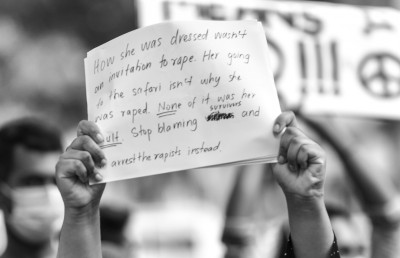 MEANS
O!!!
How she was dressed wasn't
an invitation to rape. Her going
to the safari isn't why she
was raped. None of it was her
fault. Stop blaming survivors and
arrest the rapists instead.